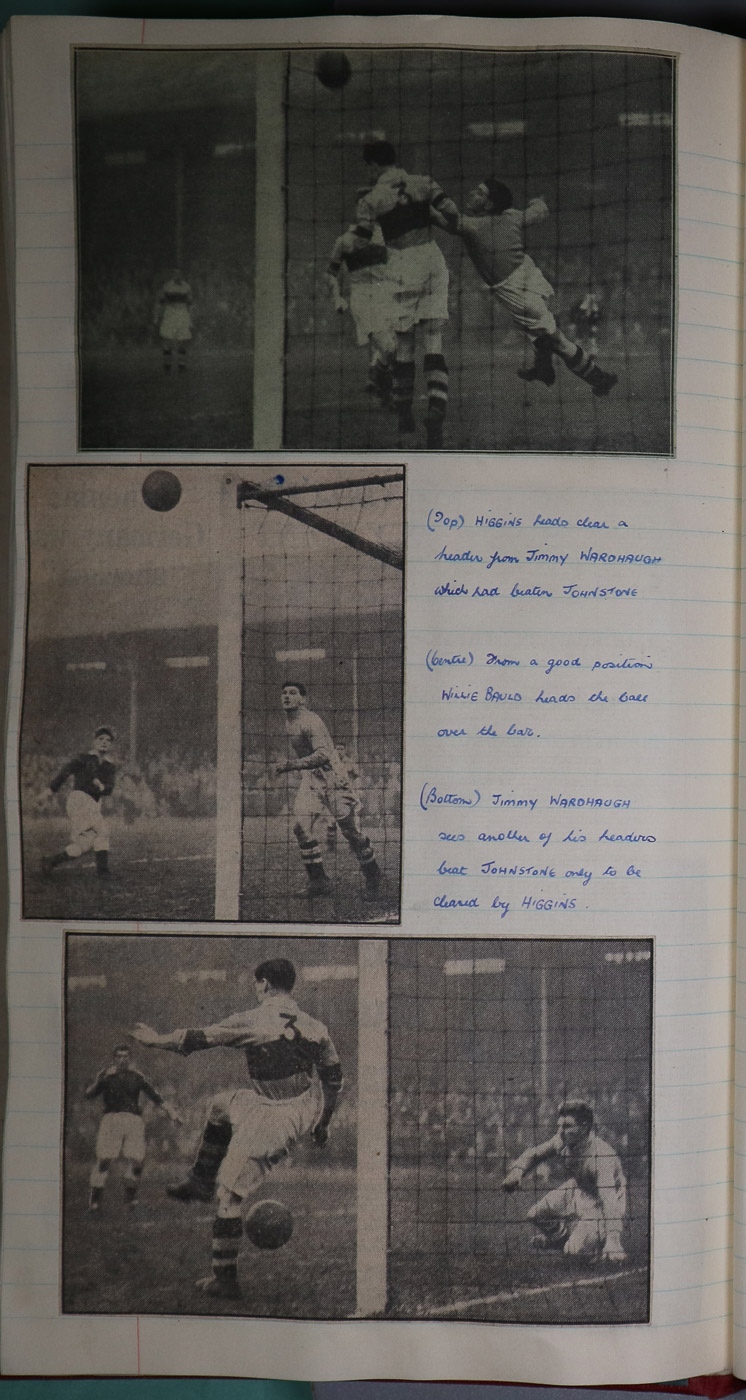 3
(Top) HIGGINS heads clear a
header from JIMMY WARDHAUGH
which had beaten JOHNSTONE
(Centre) From a good position
WILLIE BAULD heads the ball
over the bar.
(Bottom) JIMMY WARDHAUGH
sees another of his headers
beat JOHNSTONE only to be
cleared by HIGGINS.
3